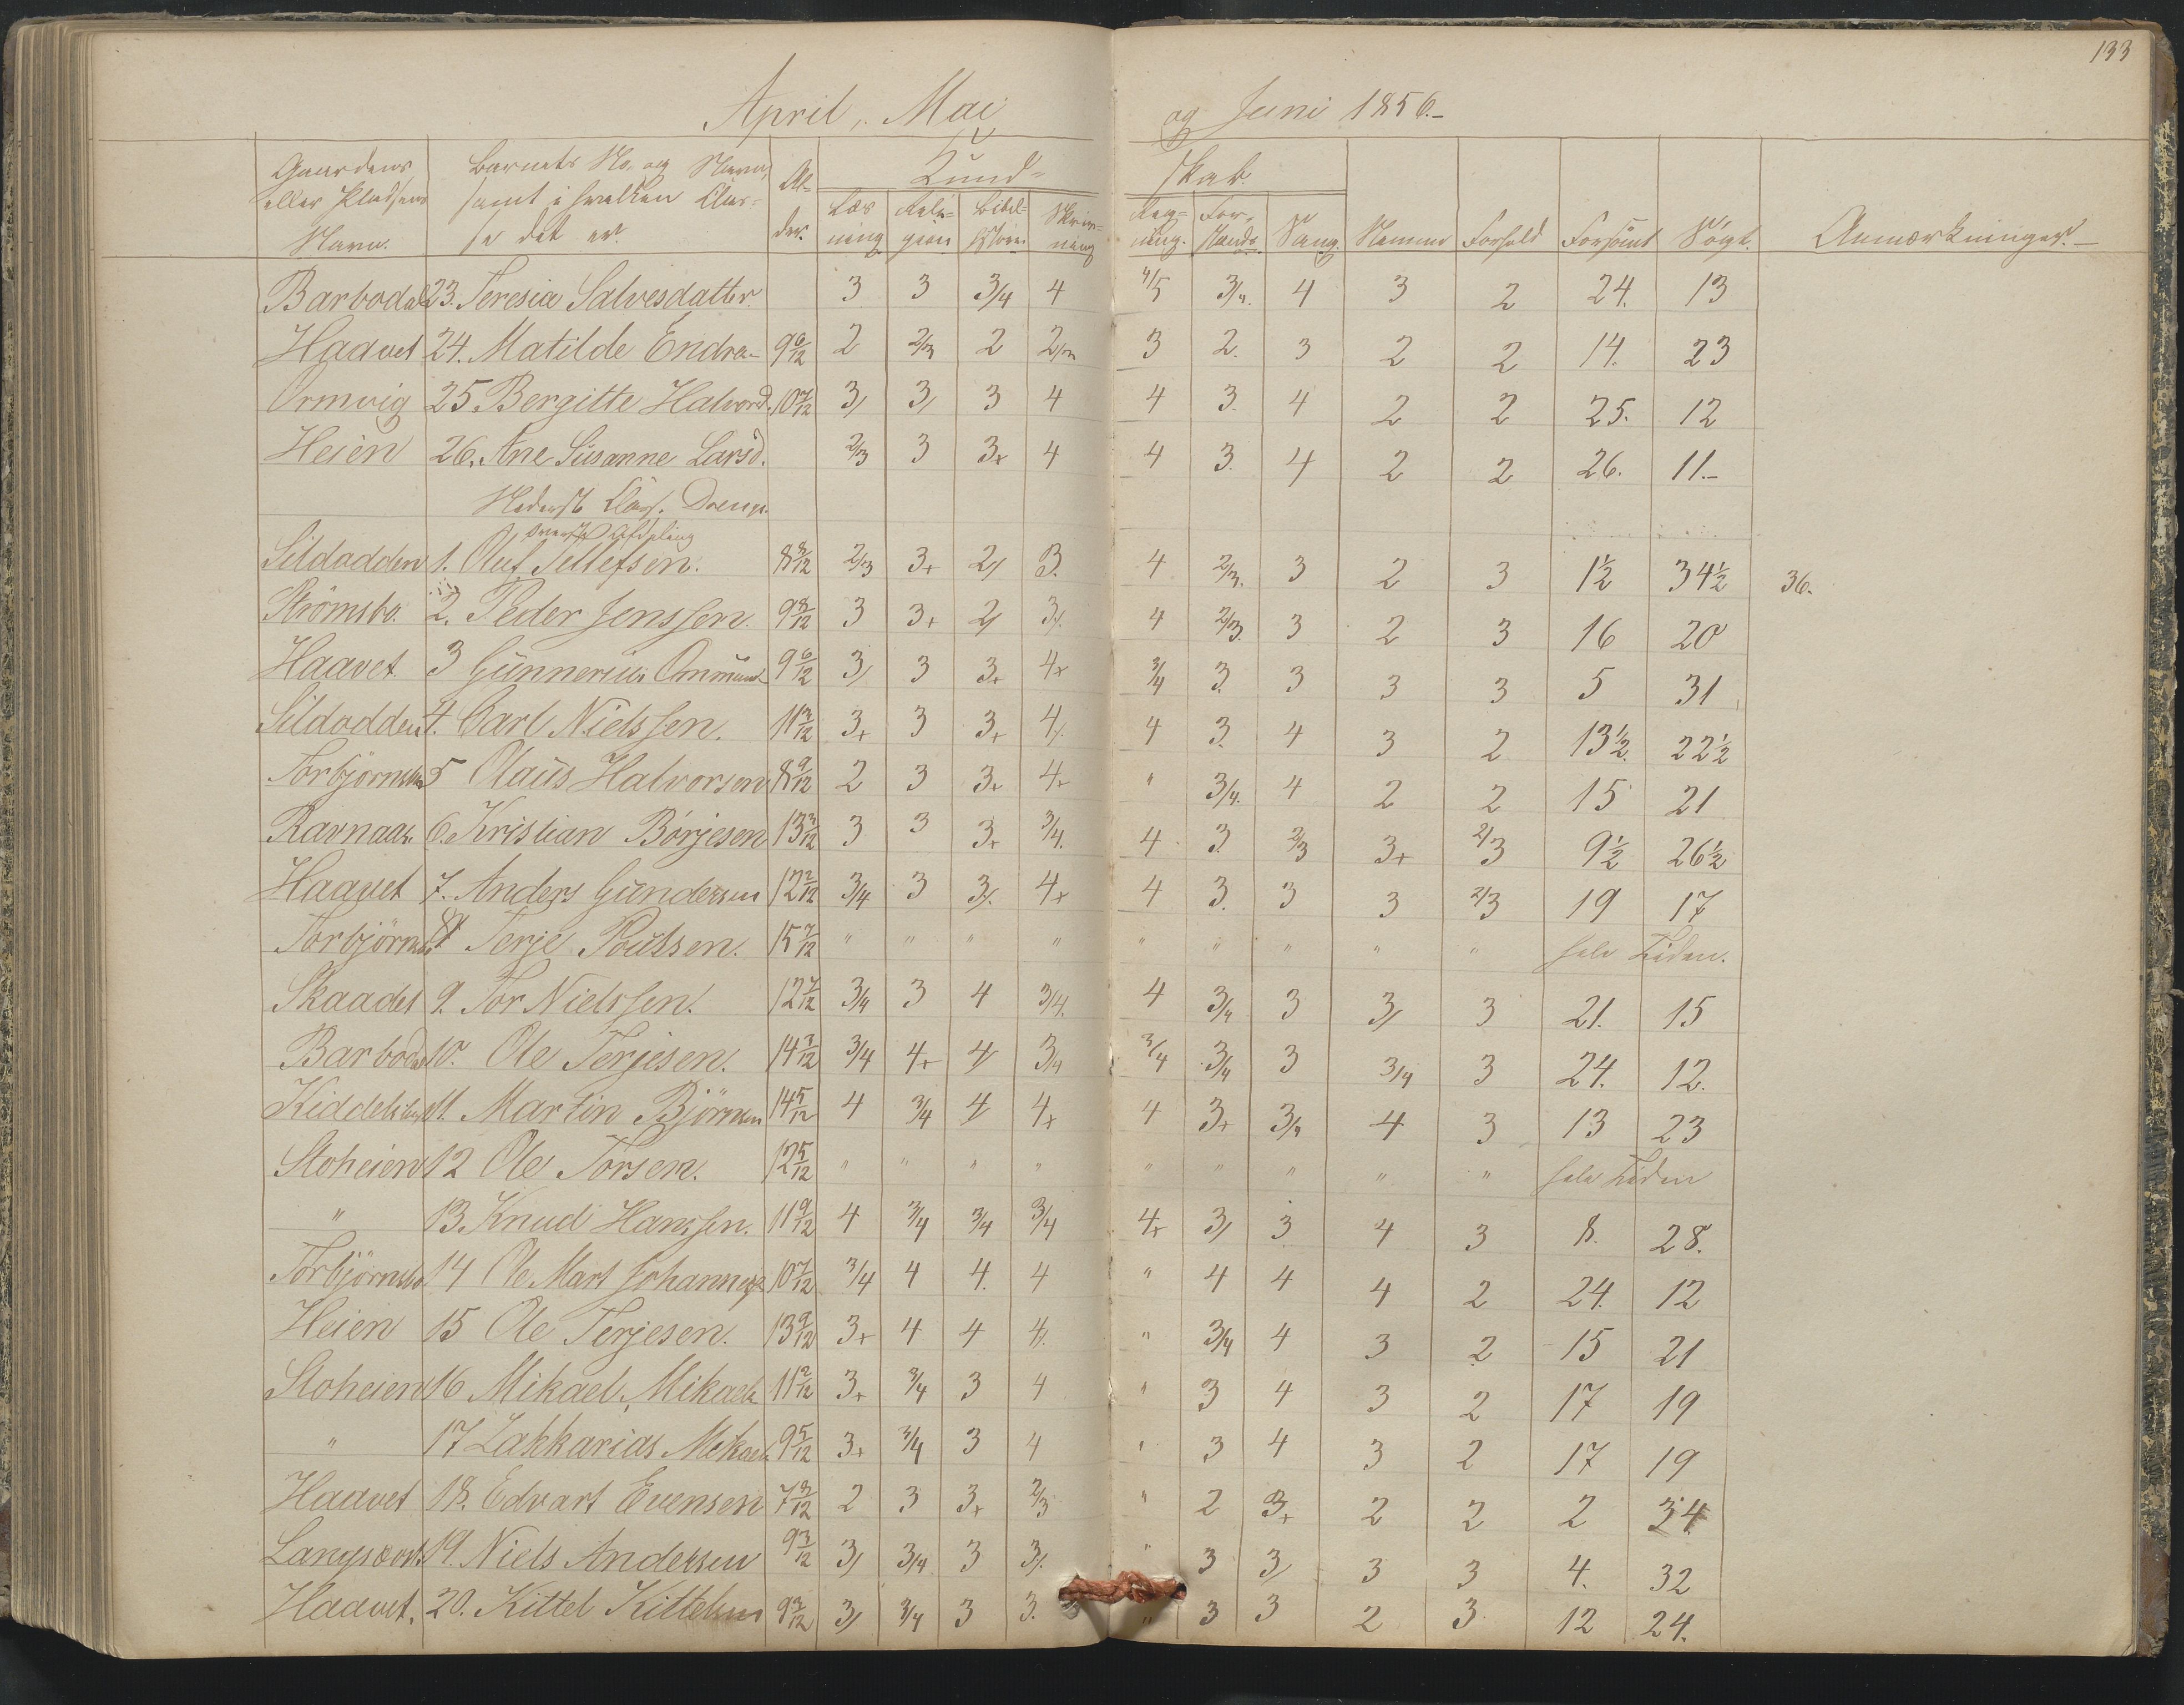 133
April, Mai og Juni 1856.-
Gaardens eller Pladsens Navn. | Barnets No. og Navn, samt i hvilken Clas=se det er. | Al=der. | Kund=skab | Nemme | Forhold | Forsömt | Sögt. | Anmærkninger.-
Læs ning | Reli=gion | Bibel=histori | Skriv=ning | Reg=ning. | For=stands | Sang
Barbodal 23. Teresia Salvesdatter 3 3 3/4 4 4/5 3/4. 4 3 2 24. 13
Haavet 24. Matilde Endre- 9 6/12 2 2/3 2 2/3 3 2. 3 2 2 14. 23
Ormvig 25. Bergitte Halvord. 10 7/12 3/ 3/ 3 4 4 3. 4 2 2 25. 12
Heien 26. Ane Susanne Larsd. 2/3 3 3+ 4 4 3. 4 2 2 26. 11.-
Nederste Class. Drenge.
överste Afdeling
Sildodden 1. Oluf Tellefsen. 8 8/12 2/3 3+ 2/ 3. 4 2/3. 3 2 3 1½ 34½ 36.
Strömsbo. 2. Peder Jenssen. 9 8/12 3 3+ 2/ 3/. 4 2/3. 3 2 3 16 20
Haavet 3 Gunnerius Ommund 9 6/12 3/ 3 3+ 4+ 3/4 3. 3 3 3 5 31
Sildodden 4. Carl Nielssen. 11 3/12 3+ 3 3+ 4/. 4 3. 4 3 2 13½. 22½
Torbjörnsbo 5 Olaus Halvorsen 8 9/12 2 3 3+ 4+ " 3/4. 4 2 2 15 21
Ravnaas. 6. Kristian Börjesen 13 3/12 3 3 3+ 3/4. 4 3. 2/3 3+ 2/3 9½ 26½
Haavet 7. Anders Gundersen 12 2/12 3/4 3 3/. 4+ 4 3. 3 3 2/3 19 17
Torbjörnsbo 8 Terje Poulssen. 15 7/12 " " " " " " " " " hele Tiden.
Skaadel 9. Tor Nielssen. 12 7/12 3/4 3 4 3/4. 4 3/4 3 3/ 3 21. 15
Barbodal 10. Ole Terjesen. 14 3/12 3/4 4+ 4/ 3/4 3/4 3/4 3 3/4 3 24. 12.
11. Martin Björnsen 14 5/12 4 3/4 4/ 4+ 4 3+ 3/4 4 3 13 23
Stoheien 12 Ole Torsen. 12 5/12 " " " " " " " " " hele Tiden
" 13. Knud Hanssen. 11 9/12 4 3/4 3/4 3/4 4+ 3/ 3 4 3 8. 28.
Torbjörnsbo 14 Ole Mart Johannes 10 7/12 3/4 4 4. 4 " 4 4 4 2 24. 12
Heien 15 Ole Terjesen. 13 9/12 3+ 4 4 4/. " 3/4 4 3 2 15 21
Stoheien 16 Mikael Mikaels 11 2/12 3+ 3/4 3 4 " 3 4 3 2 17 19
" 17 Zakkarias Mikaels 9 5/12 3+ 3/4 3 4 " 3 4 3 2 17 19
Haavet 18. Edvart Evensen 7 3/12 2 3 3+ 2/3 " 2 3+ 2 2 2 34
19. Niels Andersen 9 3/12 3/ 3/4 3 3/. " 3 3/ 3 3 4. 32
Haavet. 20. Kittel Kittelsen 9 3/12 3/ 3/4 3 3. " 3 3 2 3 12 24.